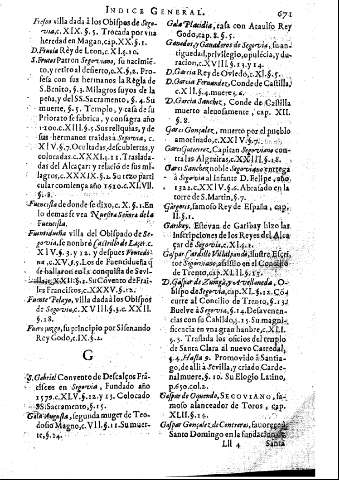 INDICE GENERAL. 671
Frescos villa dada à los Obispos de Sego-
via, c.XIX. §.5. Trocada por vna
heredad en Magan, cap.XX. §.1.
D. Fruela Rey de Leon, c.XI. §.10.
S. Frutos Patron Segoviano, su nacimiẽ-
to, y retiro al desierto, c.X. §.2. Pro-
fesa con sus hermanos la Regla de
S. Benito, §.3. Milagros suyos de la
peña, y del SS. Sacramento, §.4. Su
muerte, §.5. Templo, y casa de su
Priorato se fabrica, y consagra año
1200. c.XIII. §.5. Sus reliquias, y de
sus hermanos traidas à Segovia, c.
XIV. §.7. Ocultadas, descubiertas, y
colocadas c.XXXI. §.12. Traslada-
das del Alcaçar: y relació de sus mi-
lagros, c.XXXIX. §.12. Su rezo parti
cular comiença año 1520. c.XLVII.
§.8.
Fuencisla de donde se dixo, c.X. §.1. En
lo demas vea Nuestra Señora de la
Fuencisla.
Fuentidueña villa del Obispado de Se-
govia, se nombrò Castillo de Laçer. c.
XIV. §.3. y 12. y despues Fonticia-
na, c.XV. §.5. Los de Fuentidueña sé
se hallaron en la conquista de Sevi-
lla, c.XXII. §.2. Su Cõvento de Frai-
les Franciscos, c.XXXV. §.12.
Fuente Pelayo, villa dada à los Obispos
de Segovia, c.XVIII. §.3. c.XXII.
§.18.
Fuero juzgo, su principio por Sisenando
Rey Godo, c.IX. §.2.
G
S. Gabriel Convento de Descalços Frã-
ciscos en Segovia, Fundado año
1579. c.XLV. §.12. y 13. Colocado
el SS. Sacramento, §.15.
Gala Augusta, segunda muger de Teo-
dosio Magno, c.VII. §.11. Su muer-
te, §.14.
Gala Placidia, casa con Ataulfo Rey
Godo, cap.8. §.5.
Ganados, y Ganaderos de Segovia, su an-
tiguedad, privilegio, opulécia, y du-
racion, c.XVIII. §.13. y 14.
D. Garcia Rey de Oviedo, c.XI. §.5.
D. Garcia Fernandez, Conde de Castilla,
c.XII §.4. muere §.6.
D. Garcia Sanchez, Conde de Castilla
muerto alevosamente, cap. XII.
§.8.
Garci Gonçalez, muerto por el pueblo
amotinado, c.XXIV. §.7.
Garci Gutierrez, Capitan Segoviano con-
tra las Algeziras, c.XXIII. §.18.
Garci Sanchez noble Segoviano entrega
à Segovia al Infante D. Felipe, año,
1322. c.XXIV. §.6. Abrasado en la
torre de S. Martin, §.7.
Gárgoris, famoso Rey de España, cap.
II. §.1.
Garibay. Estevan de Garibay hizo las
Inscripciones de los Reyes del Alca-
çar de Segovia, c.XI. §.1.
Gaspar Cardillo Villalpando, ilustre Escri-
tor Segoviano, assistio en el Concilio
de Trento, cap.XLII. §.15.
D. Gaspar de Zuñiga, y Avellaneda, O-
bispo de Segovia, cap.XL. §.12. Có-
curre al Concilio de Trento, §.132
Buelve à Segovia, §.14. Desavenen-
cias con su Cabildo, §.15. Su magni-
ficencia en vna gran hambre, c.XLI.
§.3. Traslada los oficios del templo
de Santa Clara al nuevo Catredal,
§.4. Hasta 9. Promovido à Santia-
go, de alli à Sevilla, y criado Carde-
nal muere, §.10. Su Elogio Latino,
p.650. col.2.
Gaspar de Oquendo, SEGOVIANO, fa-
moso alanceador de Toros, cap.
XLII. §.16.
Gaspar Gonçalez, de Contreras, favorece à
Santo Domingo en la fundacion de
Lll 4 Santa